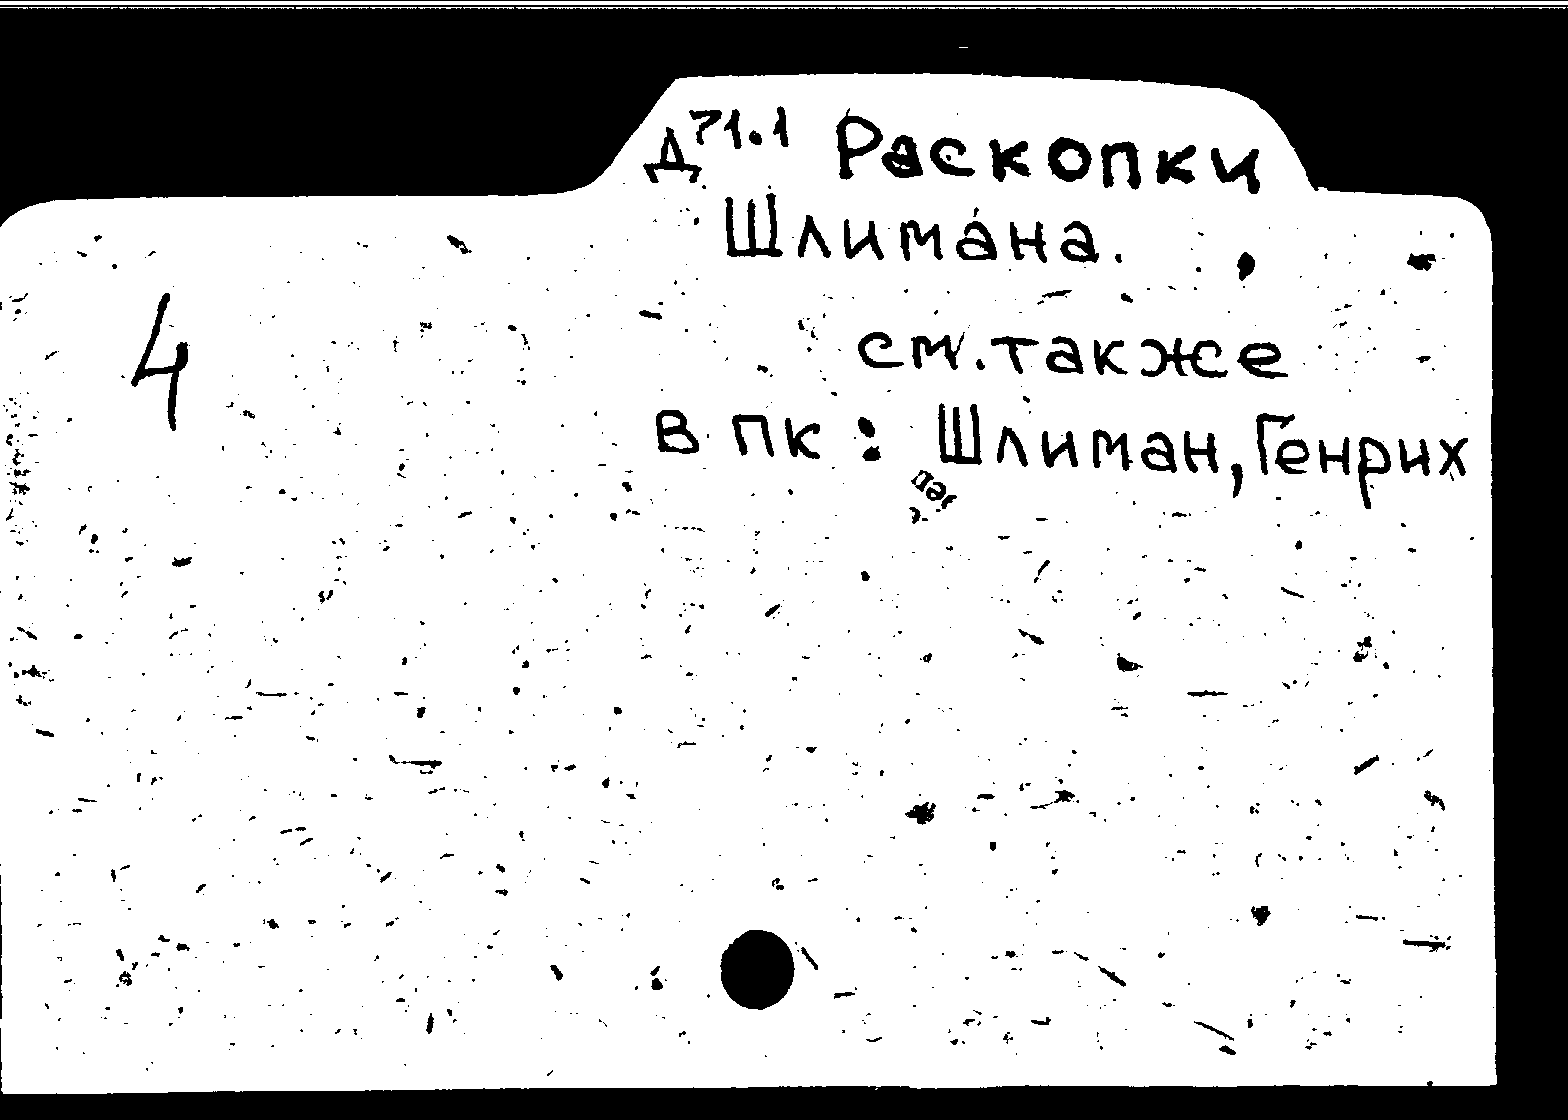 Д71.1 Раскопки
Шлимáна.
4
см. также
в пк: Шлиман, Генрих